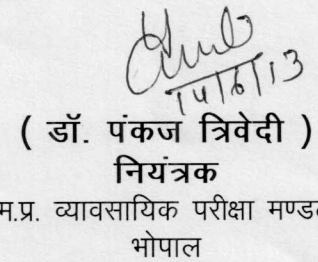 14/6/13
( डॉ. पंकज त्रिवेदी )
नियंत्रक
म.प्र. व्यावसायिक परीक्षा
भोपाल